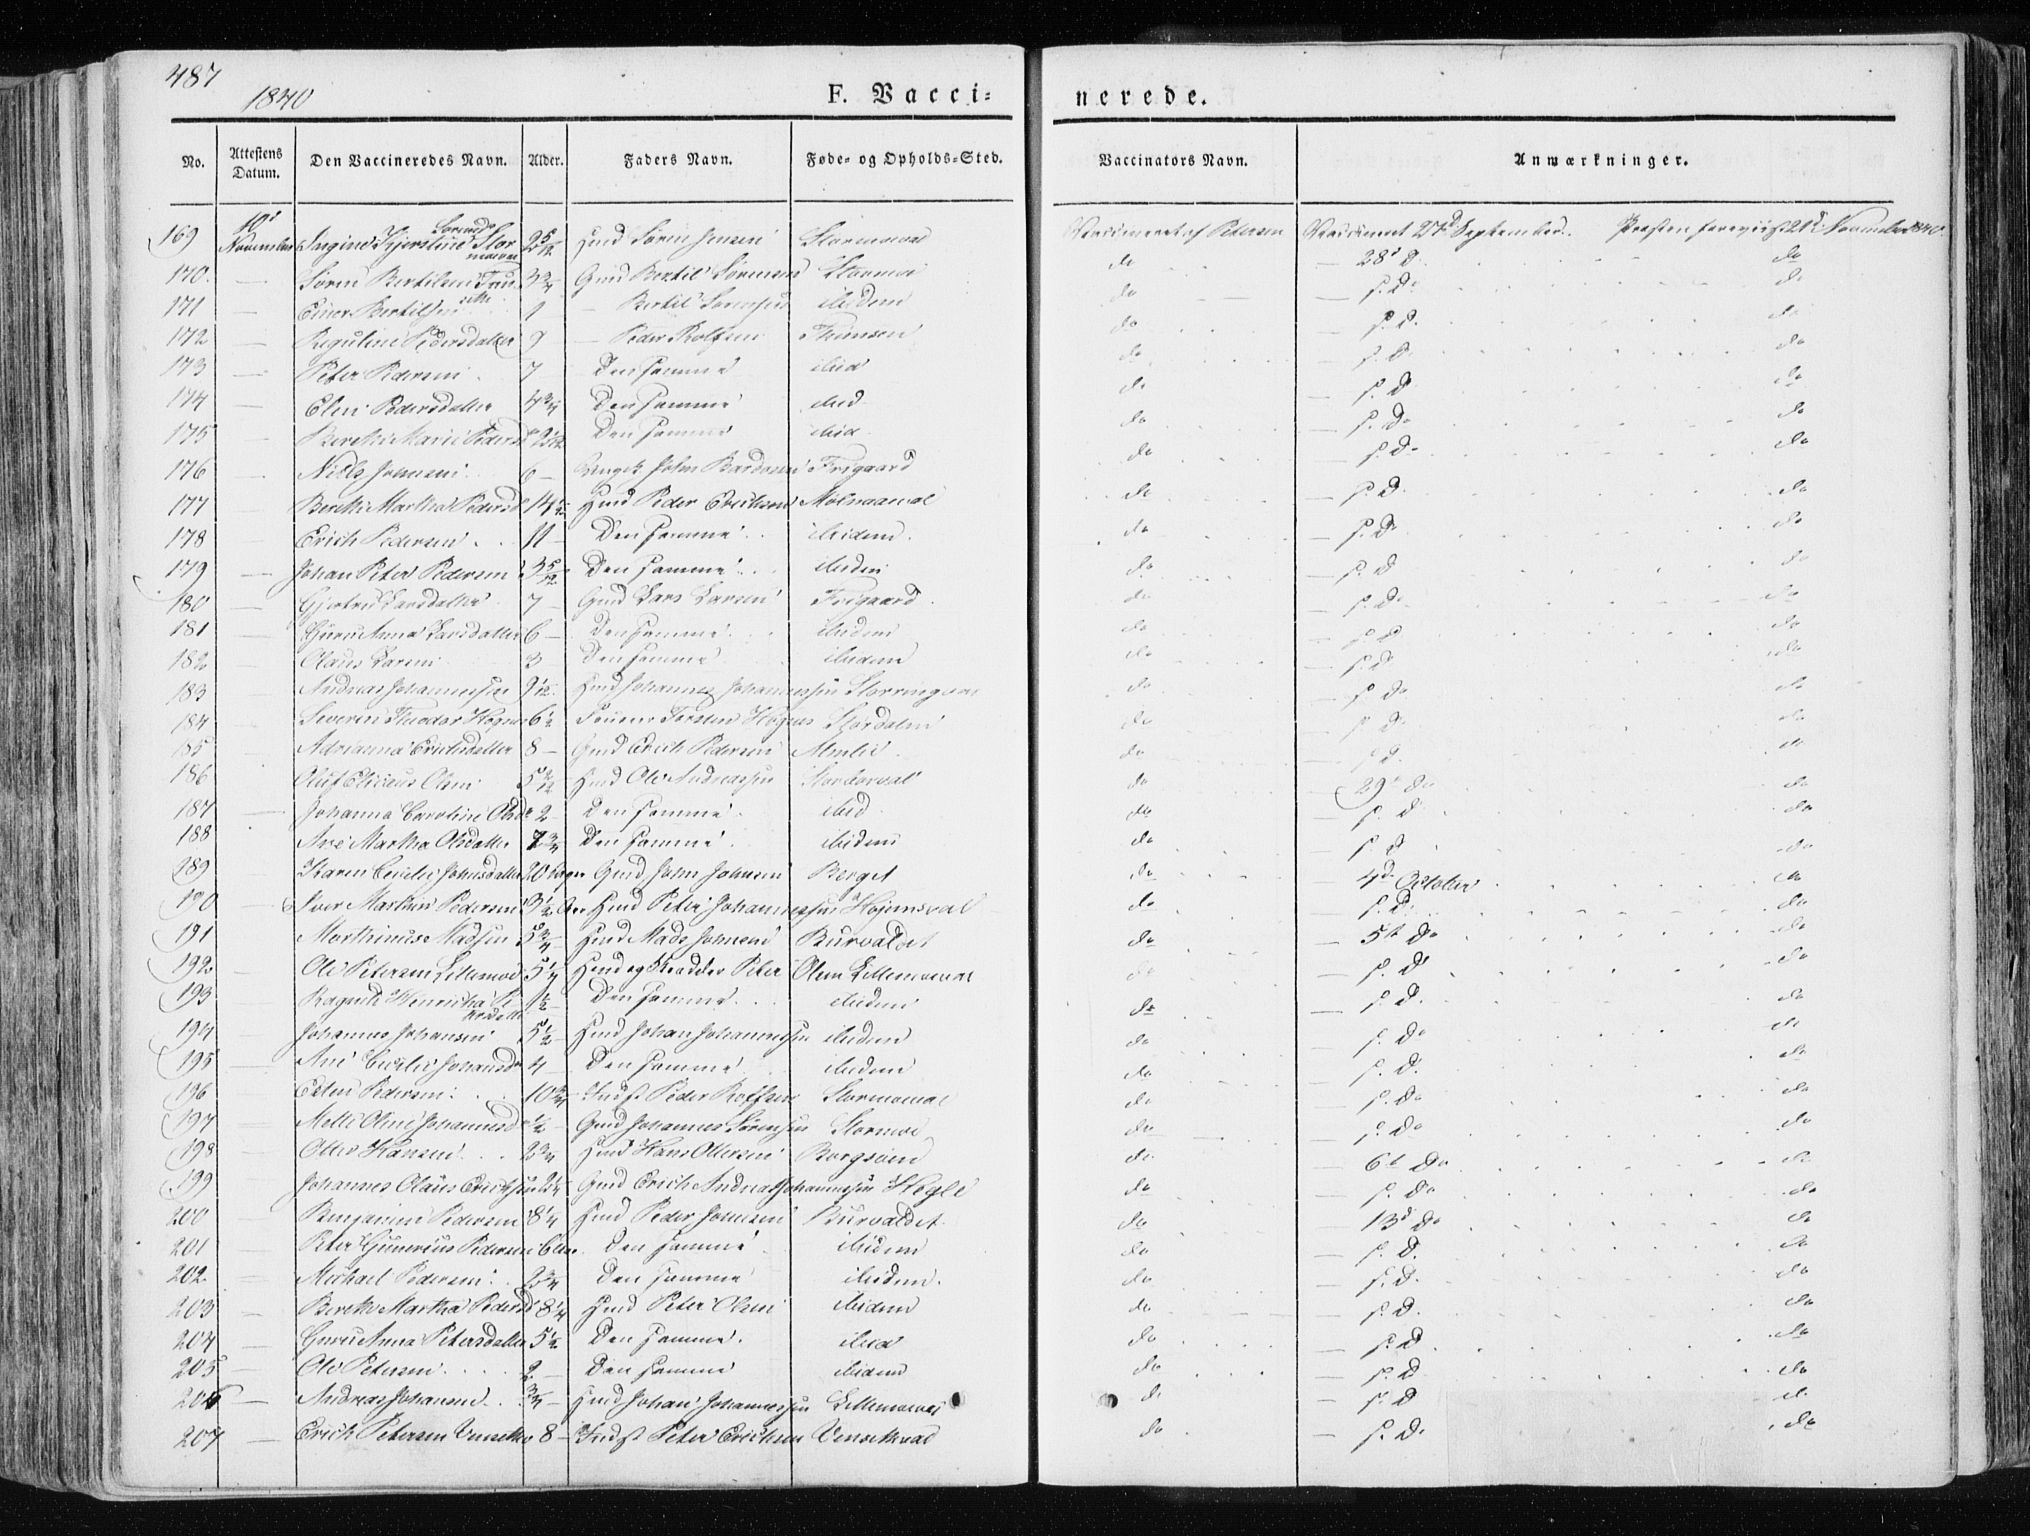 487
1840
F. Vacci=
nerede.
No. Attestens Datum. Den Vaccineredes Navn. Alder. Faders Navn. Føde- og Opholds-Sted. Vaccinators Navn. Anmærkninger.
169 November 2 5/12 Hmd Sören Jensen Stormoval Petersen Vaccineret 27d September. Præsten foreviist 21d November 1840.
170. — Sören Bertilsen 3 3/4 Gmd Bertil Sörensen Stormoe do — 28d d. do
171 — Bertilsen 1 — Bertil Sörensen ibidem do — s. D. do
172 — Reguline Pedersdatter 9 — Peder Rolfsen do — s. d. do
173 — Peter Pedersen 7 Den samme ibid do — s. d. do
174 — Elen Pedersdatter 4 3/4 Den samme ibid do — s. D do
175 — Berethe Marie Pedersd Den samme ibid do — s. Do do
176 — Niels Johnsen 6 — John Bardosen Frigaard do — s. D. do
177 — Berethe Martha Pedersd 14 Hmd Peder Erichsen Molnaaval do — s. D. do
178 — Erich Pedersen 11 — Den samme ibidem. do — s. D. do
179 — Johan Peter Pedersen 3 5/12 Den samme ibidem do — s. D do
180 — Gjertru Larsdatter 7 — Gmd Lars Larsen Frigaard do — s. D. do
181 — Guru Anna Larsdatter 6 — Den samme ibidem do — s. D do
182 — Olaus Larsen 3 — Den samme ibidem do — s. D do
183 — Andreas Johannessen 9 Hmd Johannes Johannessen do — s. Do do
184 — Severin Theodor 6 1/2 Torsten Stordalen do — s. D. do
185 — Adrianna Erichsdatter 8 — Gmd Erich Pedersen Almlie do — s. d. do
186 — Oluf Elicaus Olsen 5 Hmd Ole Andreassen do — 29d Do do
187 — Johanna Caroline Olsd 2 Den samme ibid do — s. D. do
188 — Ane Martha Olsdatter 7 3/4 Den samme ibidem do — s. d do
189 — Karen Cecilie Johnsdatter 20 Uger Gmd John Johnsen Berget do — 4d October do
190 — Iver Martin Pedersen 3 1/2 Aar Hmd Peter Johannessen Højemsval do — s. D. do
191 — Morthinus Madsen 5 3/4 Hmd Mads Johnsen Burvaldet do — 5t Do do
192 — Ole Petersen Lillemoe 5 1/4 Hmd og Skrædder Peter Olsen Lillemoeval do — s. D. do
193 — Ragnild Henricka Petersdatter 1 1/2 — Den samme ibidem do — s. D. do
194 — Johannes Johansen 5 1/2 Hmd Johan Johannessen ibidem do — s. Do do
195 — Ane Cecilie Johansd 4 — Den samme ibidem do — s. D. do
196 — Esten Pedersen 10 3/4 Indst Peder Rolfsen Stormoeval do — s. Do do
197 — Mette Oline Johannesd 1/2 — Gmd Johannes Sörensen Stormoe do — s. Do do
198 — Otter Hansen 2 3/4 Hmd Hans Ottersen Borgsöen do — 6t Do do
199 — Johannes Olaus Erichsen 2 3/4 Gmd Erich Andreas Johannessen Hegle do — s. Do do
200 — Benjamin Pedersen 8 1/4 Hmd Peder Johnsen Burvaldet do — 13d Do do
201 — Peter Gunerius Pedersen 6 Den samme ibidem do — s. D. do
202. — Michael Pedersen 2 3/4 Den samme ibidem. do — s. D. do
203 — Berethe Martha Petersd 8 1/4 Hmd Peter Olsen ibidem do — s. D. do
204 — Guru Anna Petersdatter 5 1/2 Den samme. ibid do — s. D. do
205 — Ole Petersen 2 — Den samme ibidem do — s. D. do
206 — Andreas Johansen 3/4 — Hmd Johan Johannessen Lillemoeval do — s. D do
207 — Erich Petersen 8 — Indst Peter Erichsen do — s. D. do